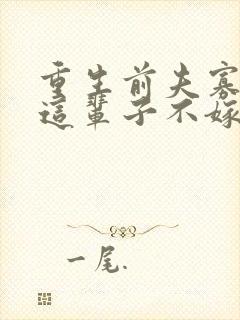 重生前夫寡
這輩子不嫁
一尾.